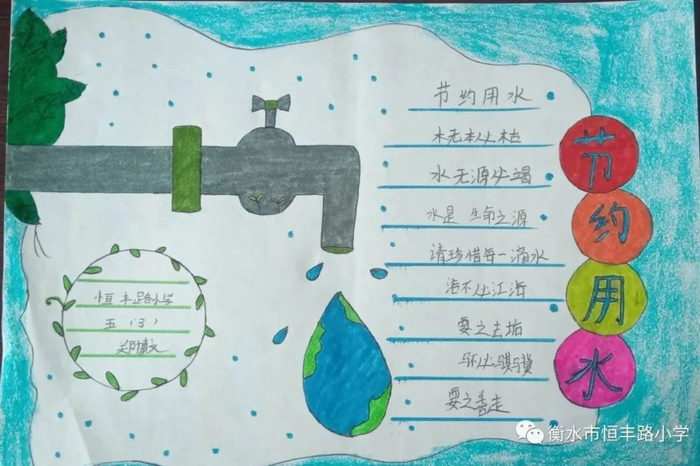 节约用水
木无本必枯
水无源必竭
水是 生命之源
请珍惜每一滴水
浴不必江海
要之去垢
马不必骐骥
要之善走
节
约
用
水
恒丰路小学
五（3）
衡水市恒丰路小学